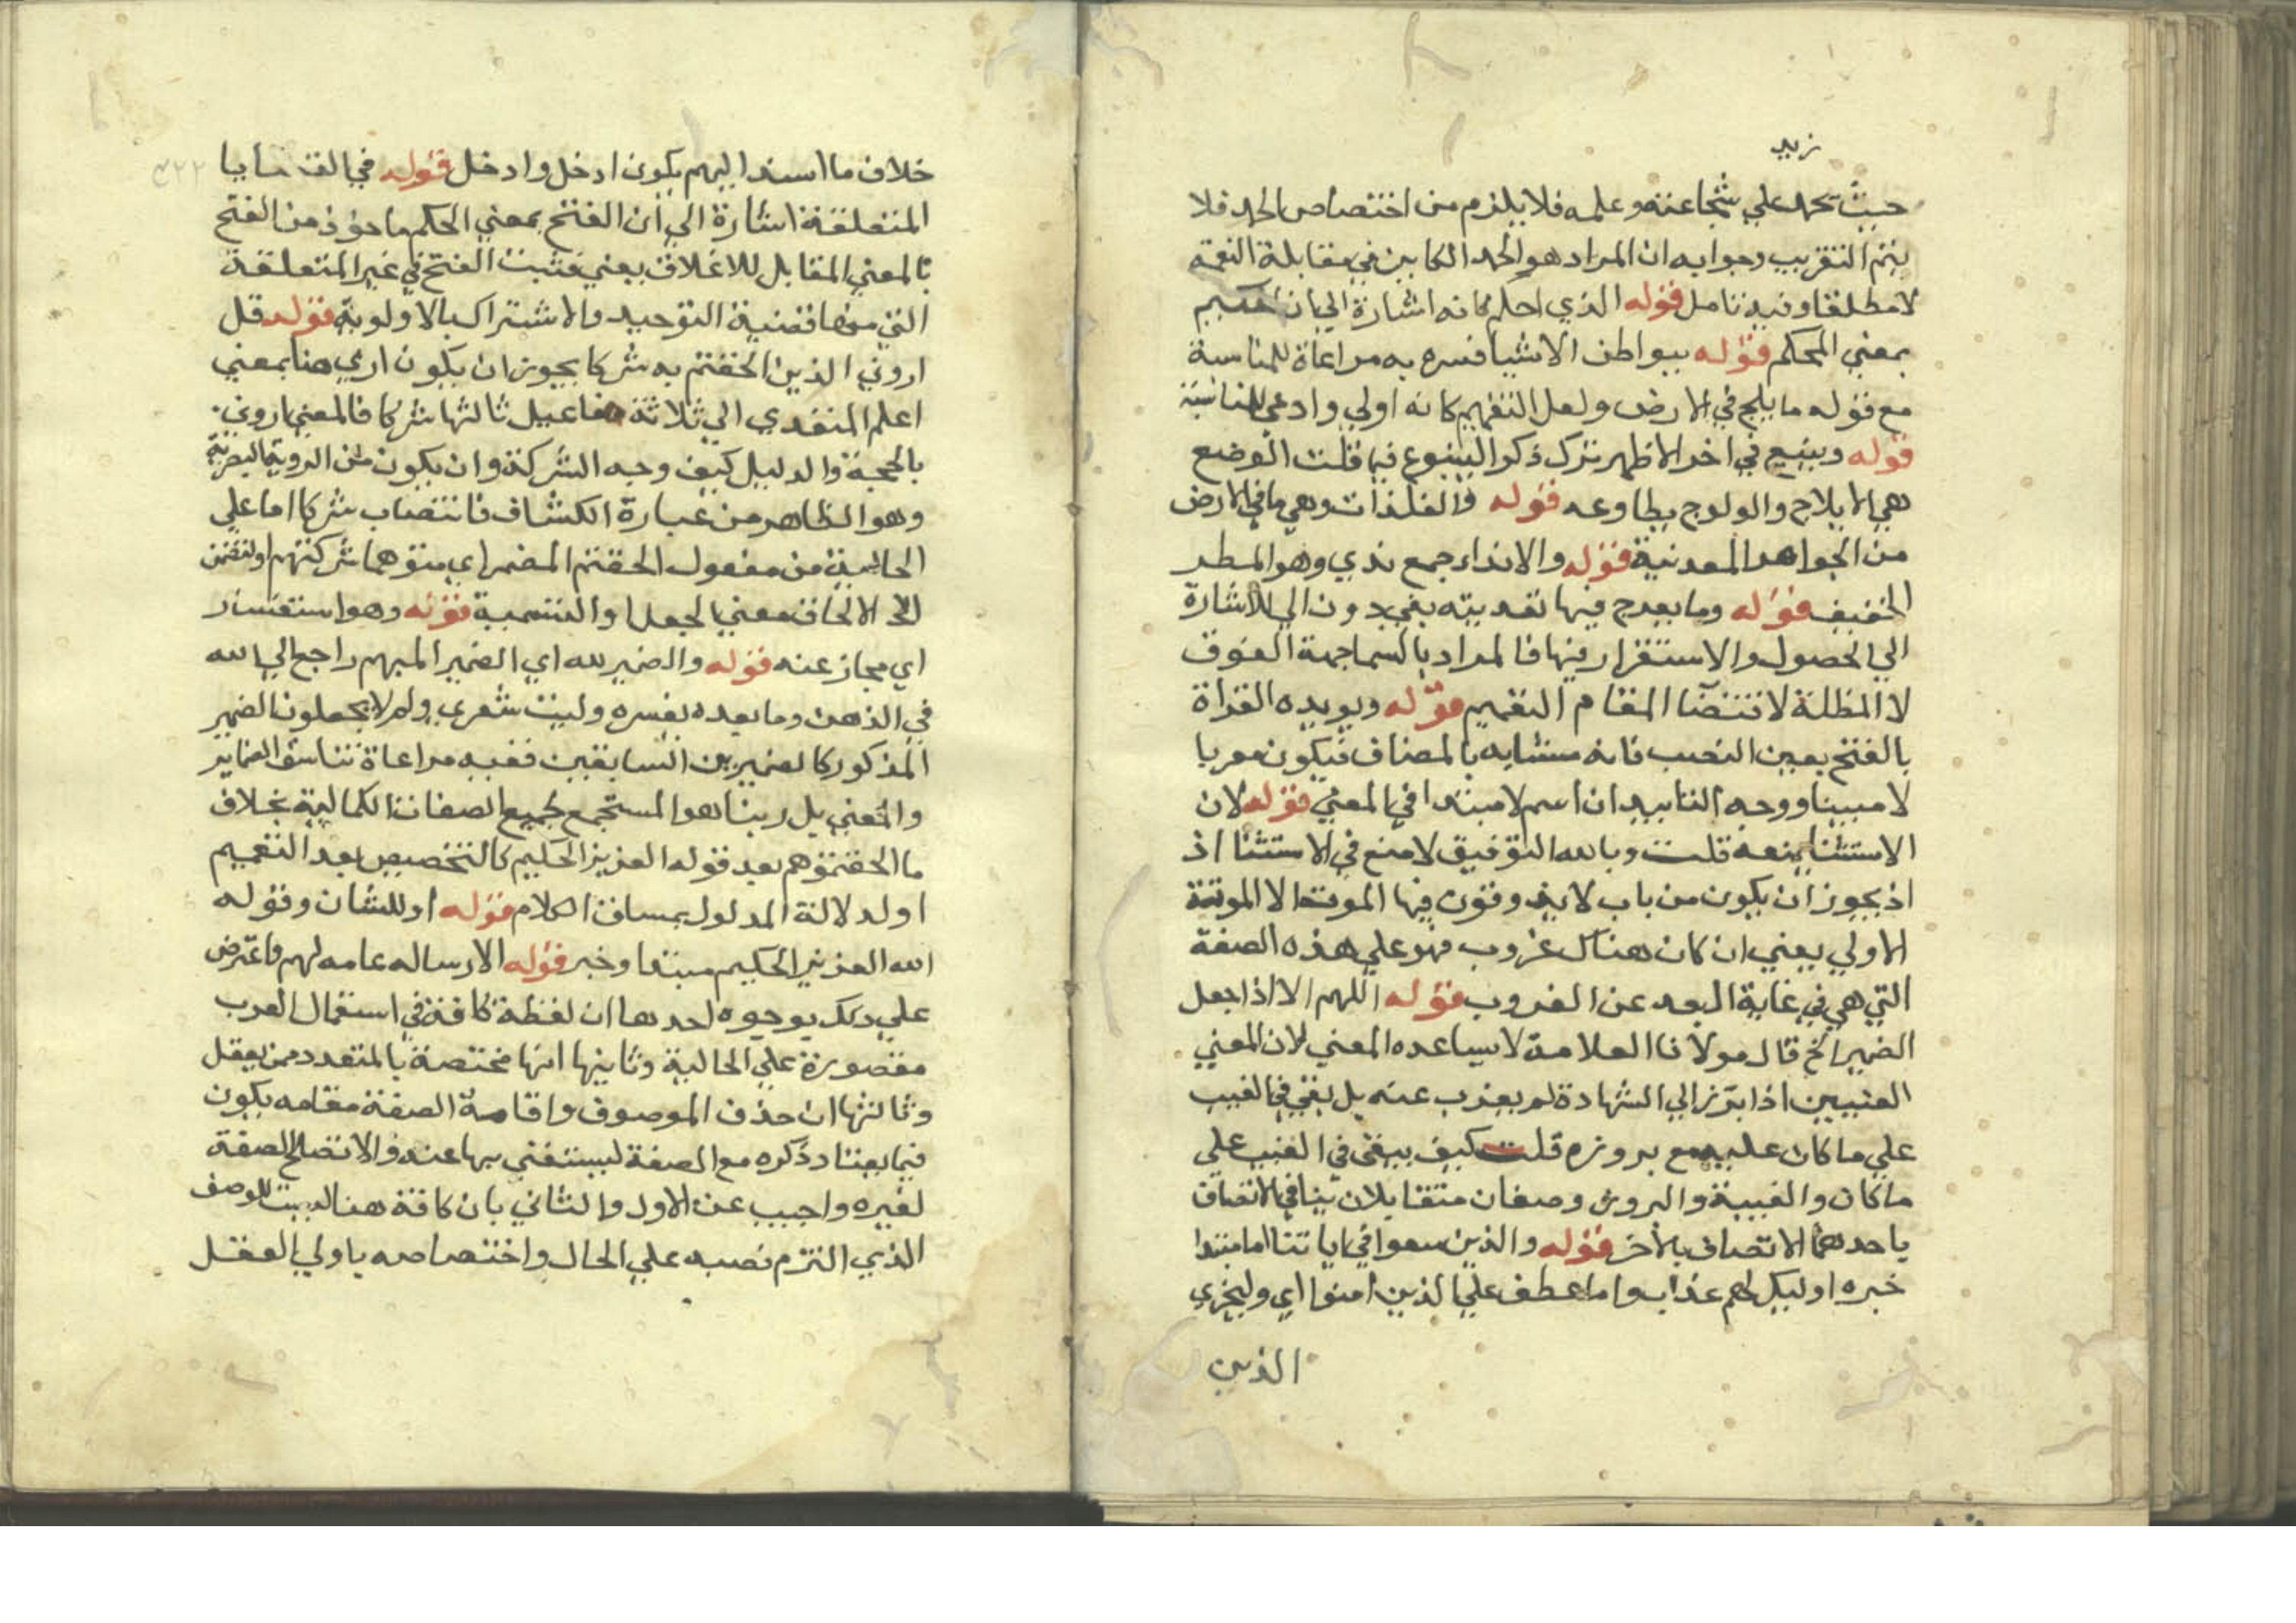 زيد
حيث يحمد علي شجاعته وعلمه فلا يلزم من اختصاص الحمد فلا
يتم التقريب وجوابه ان المراد هو الحمد الكاين في مقابلة النعمة
لا مطلقا وفيه تامل قوله الذي احكم كانه اشارة الي ان الحكيم
بمعني المحكم قوله ببواطن الاشيا فسره به مراعاة للمناسبة
مع قوله ما يلج في الارض ولعل التعميم كانه اولي وادعي للمناسبة
قوله وينبع في اخر الاظهر ترك ذكر الينبوع فيه قلت الوضع
هي الايلاج والولوج يطاوعه قوله والفلذات وهي ما في الارض
من الجواهر المعدنية قوله والانداء جمع ندي وهو المطر
الخفيف قوله وما يعرج فيها تعديته بفي دون الي للاشارة
الي الحصول والاستقرار فيها فالمراد بالسما جهة الفوق
لا المظلة لاقتضا المقام التعميم قوله ويويده القراة
بالفتح يعين النصب فانه مشابه بالمضاف فيكون معربا
لا مبنيا ووجه التاييد ان اسم لا مبتدا في المعني قوله لان
الاستثنا يمنعه قلت وبالله التوفيق لا منع في الاستثنا اذ
اذ يجوز ان يكون من باب لا يذوقون فيها الموت الا الموتة
الاولي يعني ان كان هناك عزوب فهو علي هذه الصفة
التي هي في غاية البعد عن العزوب قوله اللهم الا اذا جعل
الضمير الخ قال مولانا العلامة لا يساعده المعني لان المعني
الغيبي اذا برز الي الشهادة لم يعزب عنه بل بقي في الغيب
علي ما كان عليه مع بروزه قلت كيف يبقي في الغيب علي
ما كان والغيبة والبروز وصفان متقابلان ينافي الاتصاف
باحدهما الاتصاف بالاخر قوله والذين سعوا في اياتنا اما مبتدا
خبره اوليك لهم عذاب واما عطف علي الذين امنوا اي وليجزي
الذين
خلاف ما اسند اليهم يكون ادخل وادخل قوله في القضايا
المنغلقة اشارة الي ان الفتح بمعني الحكم ماخوذ من الفتح
بالمعني المقابل للاغلاق يعني فثبت الفتح في غير المتعلقة
التي منها قضية التوحيد والاشتراك بالاولوية قوله قل
اروني الذين الحقتم به شركا يجوز ان يكون اري هنا بمعني
اعلم المتعدي الي ثلاثة مفاعيل ثالثها شركا فالمعني اروني
بالحجة والدليل كيف وجه الشركة وان يكون من الروية البصرية
وهو الظاهر من عبارة الكشاف فانتصاب شركا اما علي
الحالية من مفعول الحقتم المضمر اي متوهما شركتهم او لتضمن
الالحاق معني الجعل او التسمية قوله وهو استفسار
اي مجاز عنه قوله والضمير لله اي الضمير المبهم راجع الي الله
في الذهن وما بعده يفسره وليت شعري ولم لا يجعلون الضمير
المذكور كالضميرين السابقين ففيه مراعاة تناسق الضماير
والمعني بل ربنا هو المستجمع لجميع الصفات الكمالية بخلاف
ما الحقتموهم بعد قوله العزيز الحكيم كالتخصيص بعد التعميم
او لدلالة المدلول بمساق الكلام قوله او للشان وقوله
الله العزيز الحكيم مبتدا وخبر قوله الا رساله عامه لهم واعترض
علي ذلك بوجوه احدها ان لفظة كافة في استعمال العرب
مقصورة علي الحالية وثانيها انها مختصة بالمتعدد ممن يعقل
وثالثها ان حذف الموصوف واقامة الصفة مقامه يكون
فيما يعتاد ذكره مع الصفة ليستغني بها عنه والا تصلح الصفة
لغيره واجيب عن الاول والثاني بان كافة هنا ليست للوصف
الذي التزم نصبه علي الحال واختصاصه باولي العقل